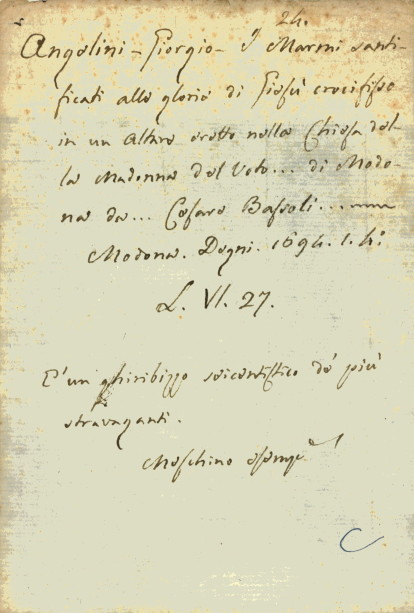 24.
Angolini - Giorgio - I Marmi santi-
ficati alla gloria di Giesù crocifisso
in un Altare eretto nella Chiesa del-
la Madonna del Voto... di Mode-
na da... Cesare Bassoli...
Modona. Degni. 1694. i. 4:
L. VI. 27.
E' un ghiribizzo seicentistico de' più
stravaganti.
Meschino esempe
C